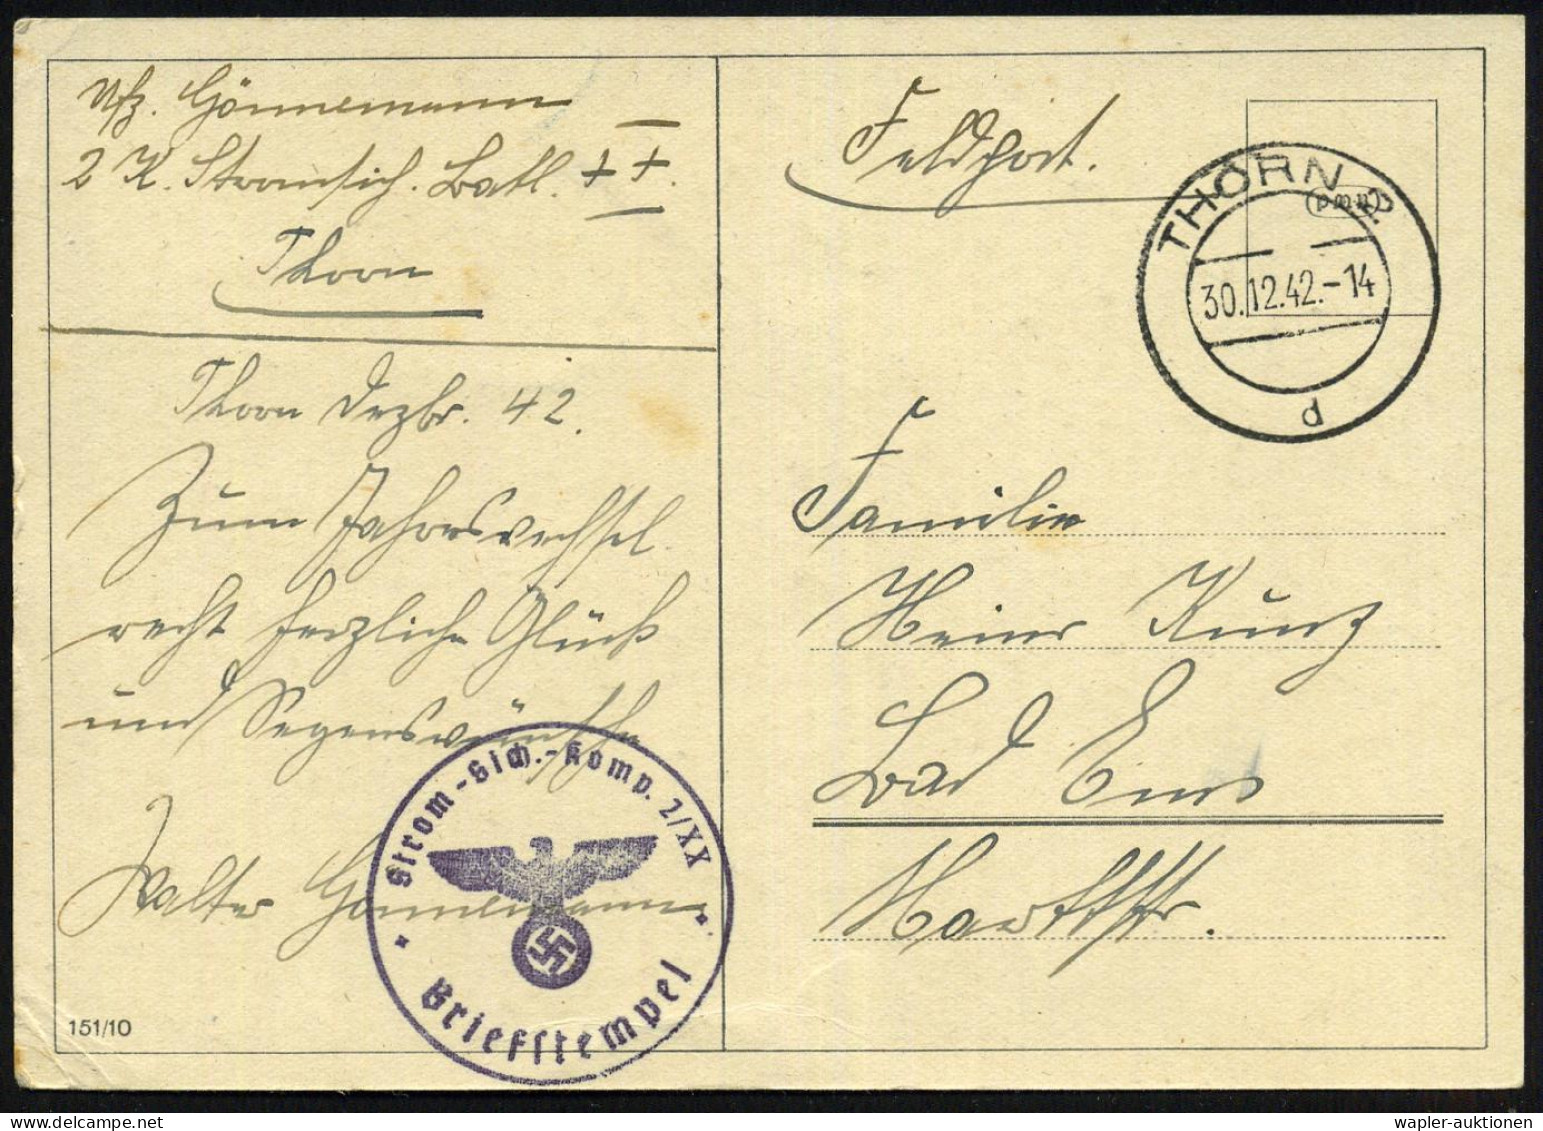 Uffz. Gönnemann
2 K. Stromsich. Batl. XX.
Thorn
Thorn Dezbr. 42.
Zum Jahreswechsel
recht herzliche Glück
und Segenswünsche
Walter Gönnemann
Strom-Sich.-Komp. 2/XX
Briefstempel
151/10
Feldpost.
THORN 2
(pmn)
30.12.42.-14
d
Familie
Heinr Kunz
Bad Ems
Marktstr.
wapler-auktionen